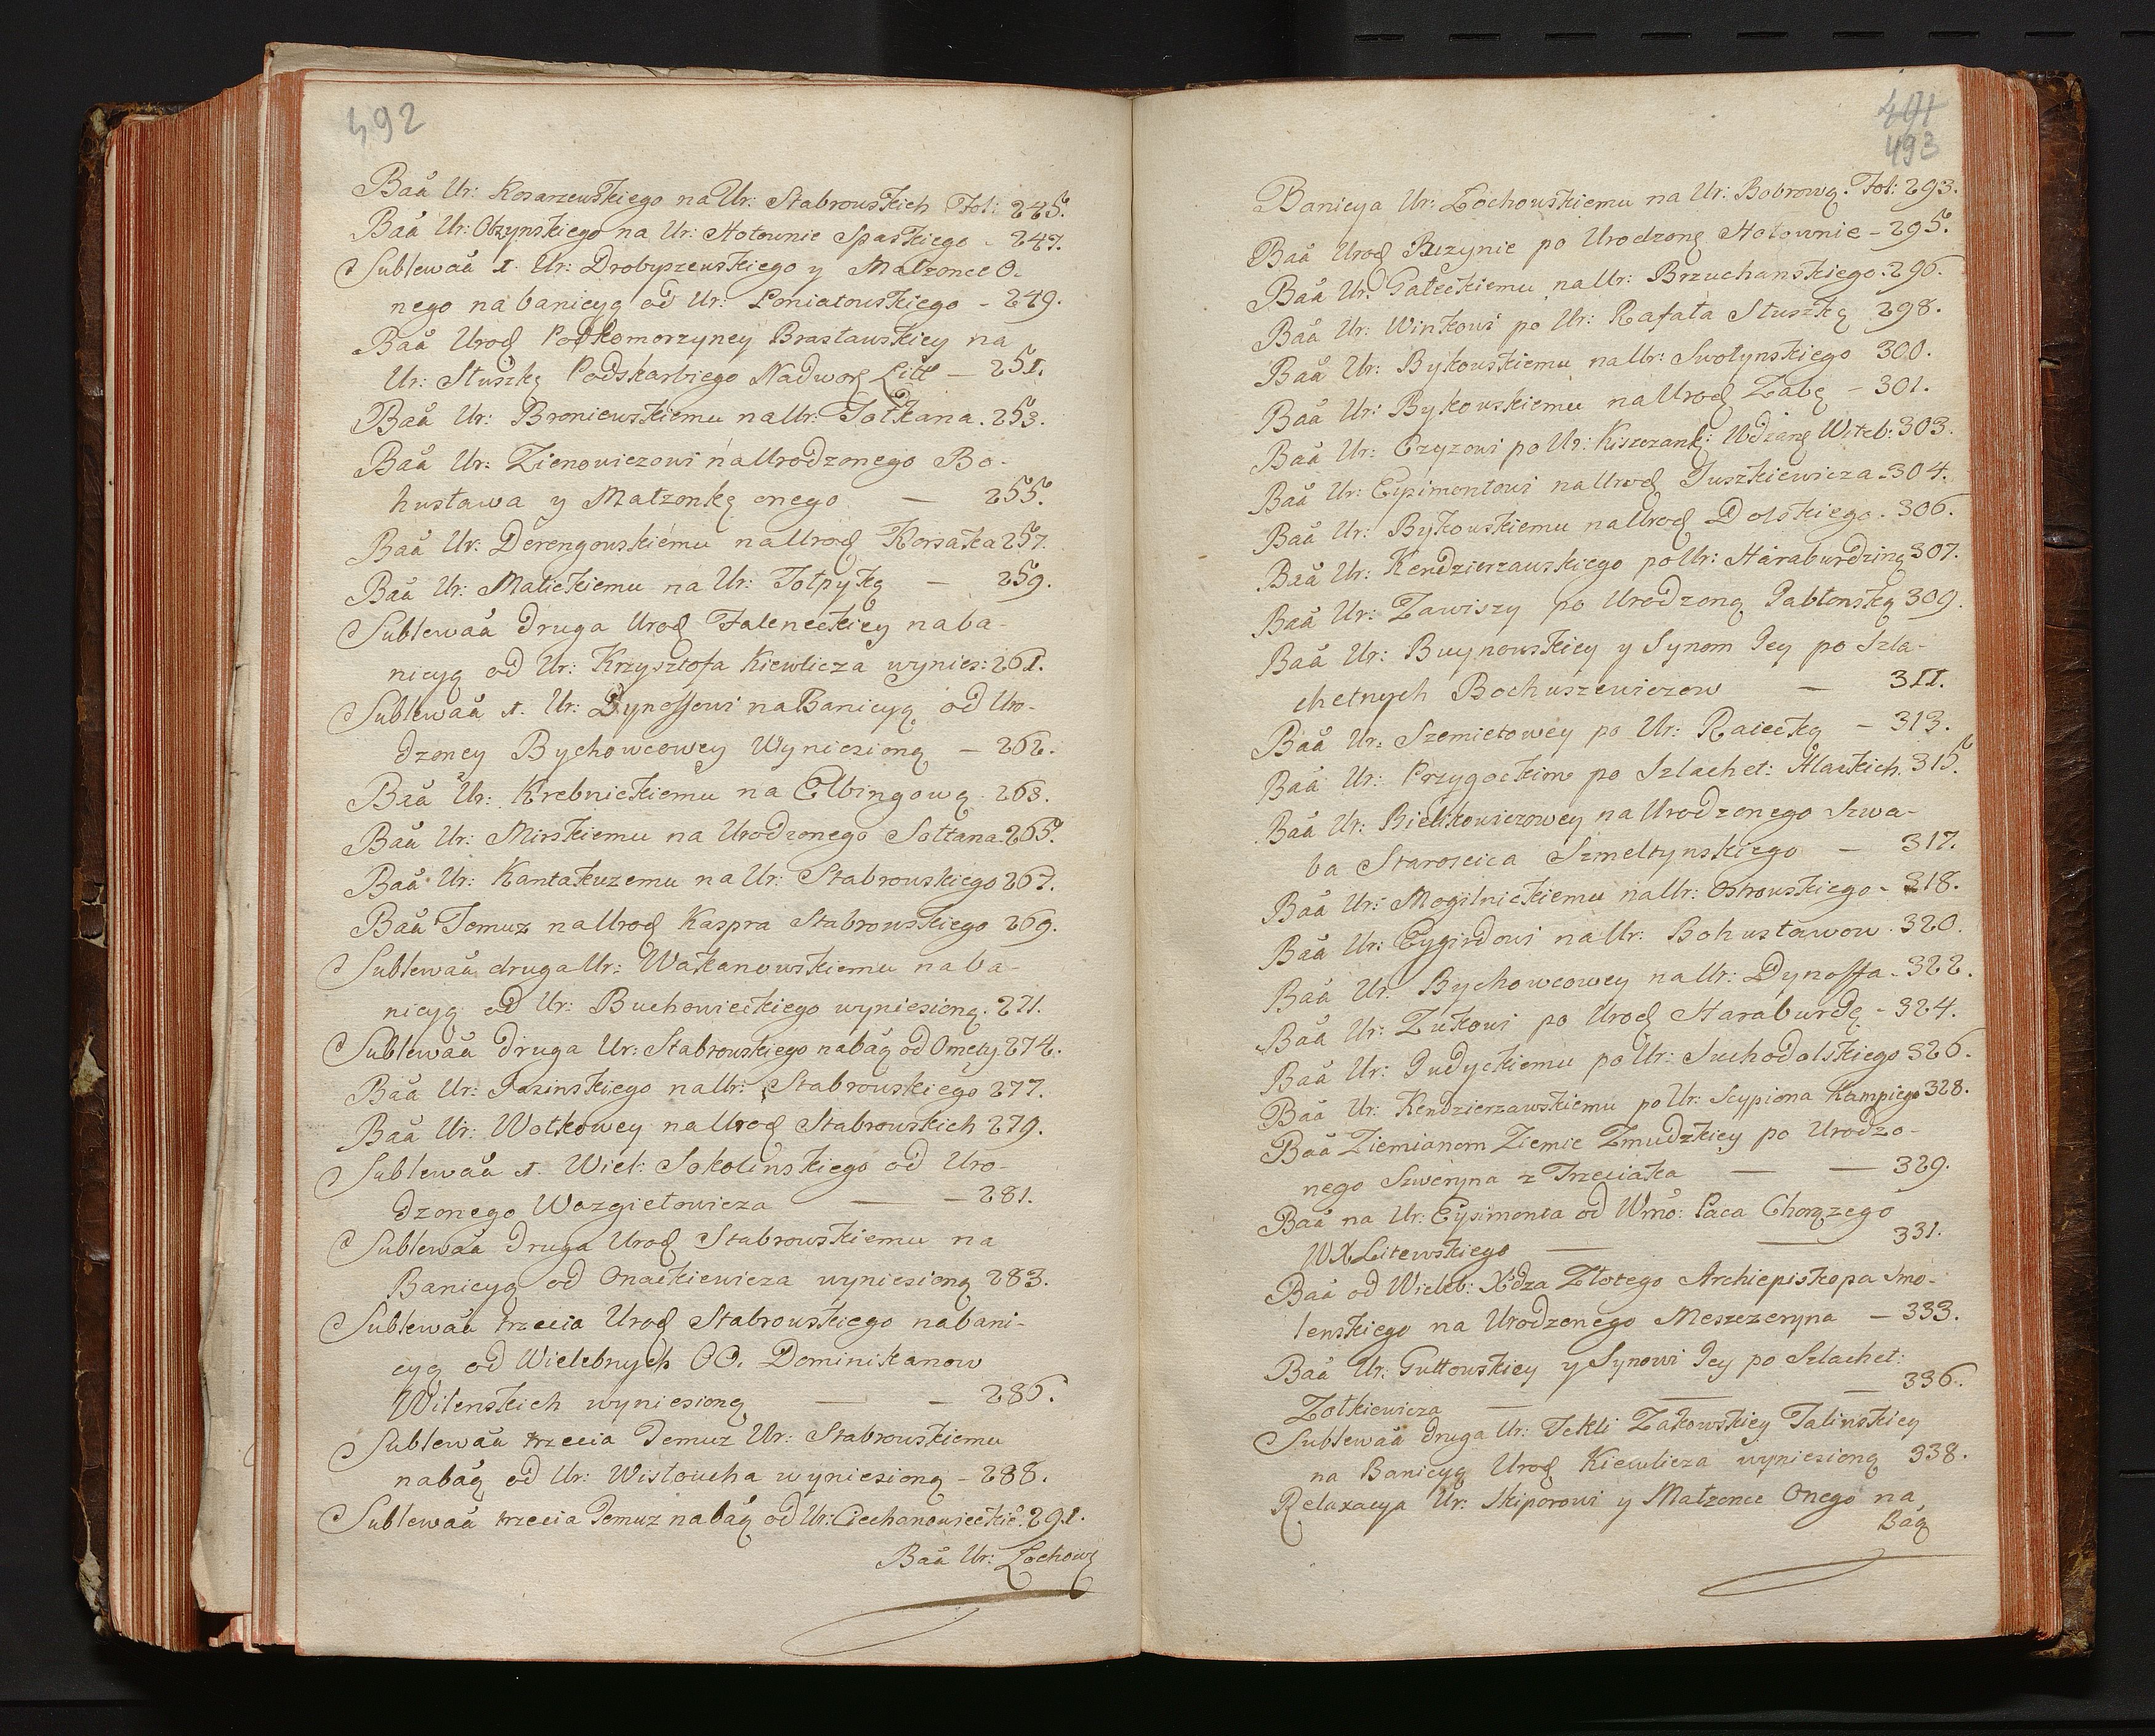 492
Baa Ur: Kosarzewskiego na Ur: Stabrowskich Fol: 245.
Baa Ur: Obzynskiego na Ur: Hołownie Spaskiego - 247.
Sublewaa I. Ur: Drobyszewskiego y Małzonce O-
nego na banicyą od Ur: Poniatowskiego - 249.
Baa Urod Podkomorzyney Brasławskiey na
Ur: Słuszkę Podskarbiego Nadwor Litt - 251.
Baa Ur: Broniewskiemu na Ur: Jołkana. 253.
Baa Ur: Zienowiczowi na Urodzonego Bo-
husława y Małzonkę onego - 255.
Baa Ur: Derengowskiemu na Urod Korsaka 257.
Baa Ur: Malickiemu na Ur: Tołpykę - 259.
Sublewaa druga Urod Faleneckiey na ba-
nicyą od Ur: Krzysztofa Kiewlicza wynies: 261.
Sublewaa 1. Ur: Dynossowi na Banicyą od Uro-
dzoney Bychowcowey Wyniesioną - 262.
Baa Ur: Krebnickiemu na Elbingową - 263.
Baa Ur: Mirskiemu na Urodzonego Sołtana. 265.
Baa Ur: Kantakuzemu na Ur: Stabrowskiego 267.
Baa Temuz na Urod Kaspra Stabrowskiego 269.
Sublewaa druga Ur: Wakanowskiemu na ba-
nicyą od Ur: Buchowieckiego wyniesioną. 271.
Sublewaa druga Ur: Stabrowskiego na bąą od Omety. 274.
Baa Ur: Jasinskiego na Ur: Stabrowskiego 277.
Baa Ur: Wołkowey na Urod Stabrowskich 279.
Sublewaa 1. Wiel: Sokolinskiego od Uro-
dzonego Wazgietowicza - - 281.
Sublewaa druga Urod Stabrowskiemu na
Banicyą od Onackiewicza wyniesioną 283.
Sublewaa trzecia Urod Stabrowskiego na bani-
cyą od Wielebnych OO. Dominikanow
Wilenskich wyniesioną - - 286.
Sublewaa trzecia Temuz Ur: Stabrowskiemu
na baą od Ur: Wisłoucha wyniesioną - 288.
Sublewaa trzecia Temuz na baą od Ur: Ciechanowieckie: 291.
Baa Ur: Łochow
491
493
Banicya Ur: Łochowskiemu na Ur: Bobrową. Fol: 293.
Baa Urod Rezynie po Urodzoną Hołownie - 295.
Baa Ur: Gałeckiemu na Ur: Brzuchanskiego. 296.
Baa Ur: Winkowi po Ur: Rafała Słuszkę 298.
Baa Ur: Bykowskiemu na Ur: Swołynskiego 300.
Baa Ur: Bykowskiemu na Urod Zabę - 301.
Baa Ur: Czyzowi po Ur: Kiszczank: Wdzianę Witeb: 303.
Baa Ur: Eysimontowi na Urod Juszkiewicza. 304.
Baa Ur: Bykowskiemu na Urod Dolskiego. 306.
Baa Ur: Kendzierzawskiego po Ur: Haraburdzinę 307.
Baa Ur: Zawiszy po Urodzoną Jabłonską 309.
Baa Ur: Buynowskiey y Synom Jey po Szla-
chetnych Bochuszewiczow - 311.
Baa Ur: Szemietowey po Ur: Raiecką - 313.
Baa Ur: Przygockim po Szlachet: Mackich. 315.
Baa Ur: Bielikowiczowey na Urodzonego Szwa-
ba Staroscica Szmeltynskiego - 317.
Baa Ur: Mogilnickiemu na Ur: Ostrowskiego - 318.
Baa Ur: Eygirdowi na Ur: Bohusławow. 320.
Baa Ur: Bychowcowey na Ur: Dynossa - 322.
Baa Ur: Zukowi po Urod Haraburdę - 324.
Baa Ur: Judyckiemu po Ur: Suchodolskiego 326.
Baa Ur: Kendzierzawskiemu po Ur: Scypiona Kampiego 328.
Baa Ziemianom Ziemie Zmudzkiey po Urodzo-
nego Szweryna z Trzeciaka - - 329.
Baa na Ur: Eysimonta od Wmo: Paca Chorązego
WXLitewskiego - - 331.
Baa od Wieleb: Xdza Złotego Archiepiskopa Smo-
lenskiego na Urodzonego Meszczeryna - 333.
Baa Ur: Guttowskiey y Synowi Jey po Szlachet:
Zołkiewicza - - - 336.
Sublewaa druga Ur: Tekli Zakowskiey Talinskiey
na Banicyą Urod Kiewlicza wyniesioną 338.
Relaxacya Ur: Skiporowi y Małzonce Onego na
Bąą